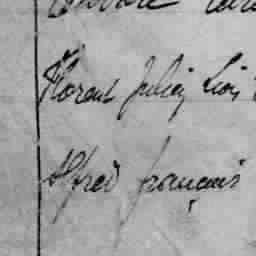 Florent Julien Léon
Alfred françois